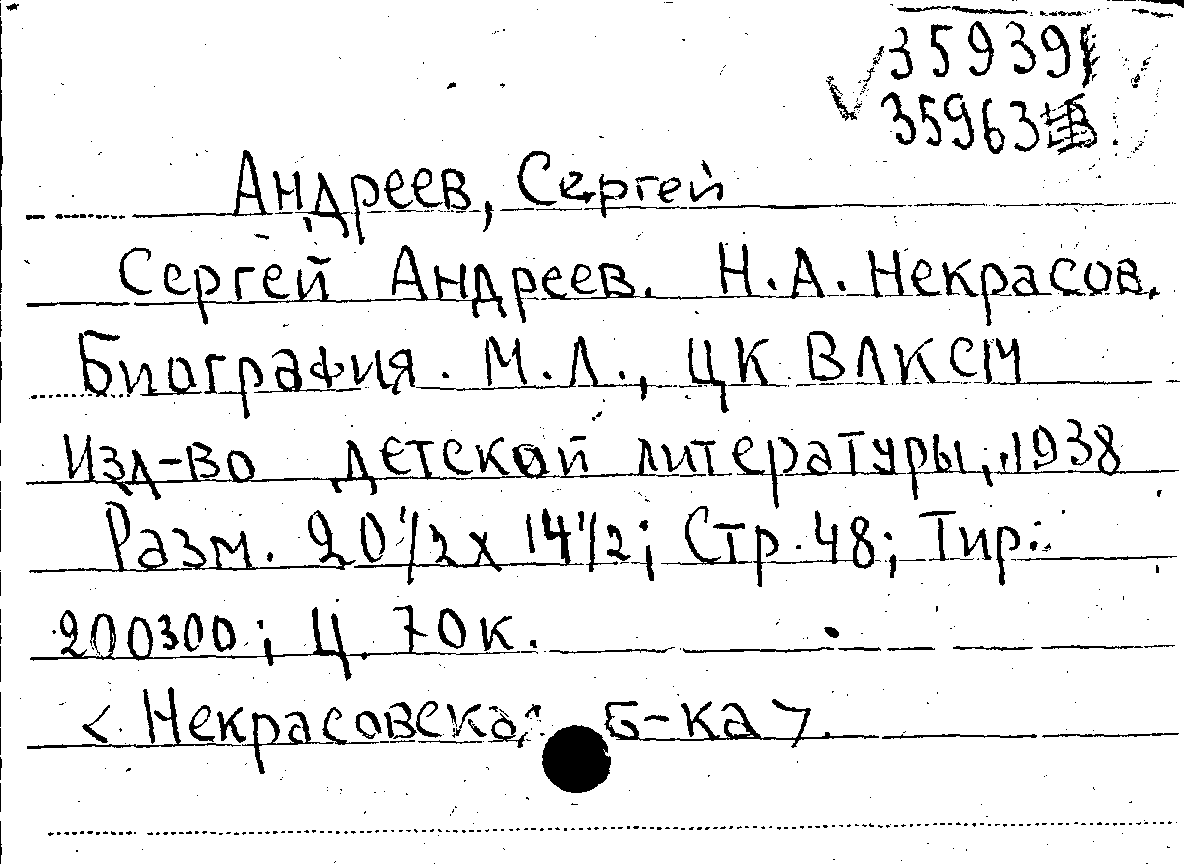 35939
35963
Андреев, Сергей
Сергей Андреев. Н.А. Некрасов.
Биография. М.Л., ЦК ВЛКСМ
Изд-во детской литературы, 1938
Разм. 20 1/2 х 14 1/2; Стр. 48; Тир.
200300; Ц. 70к.
< Некрасовская б-ка >